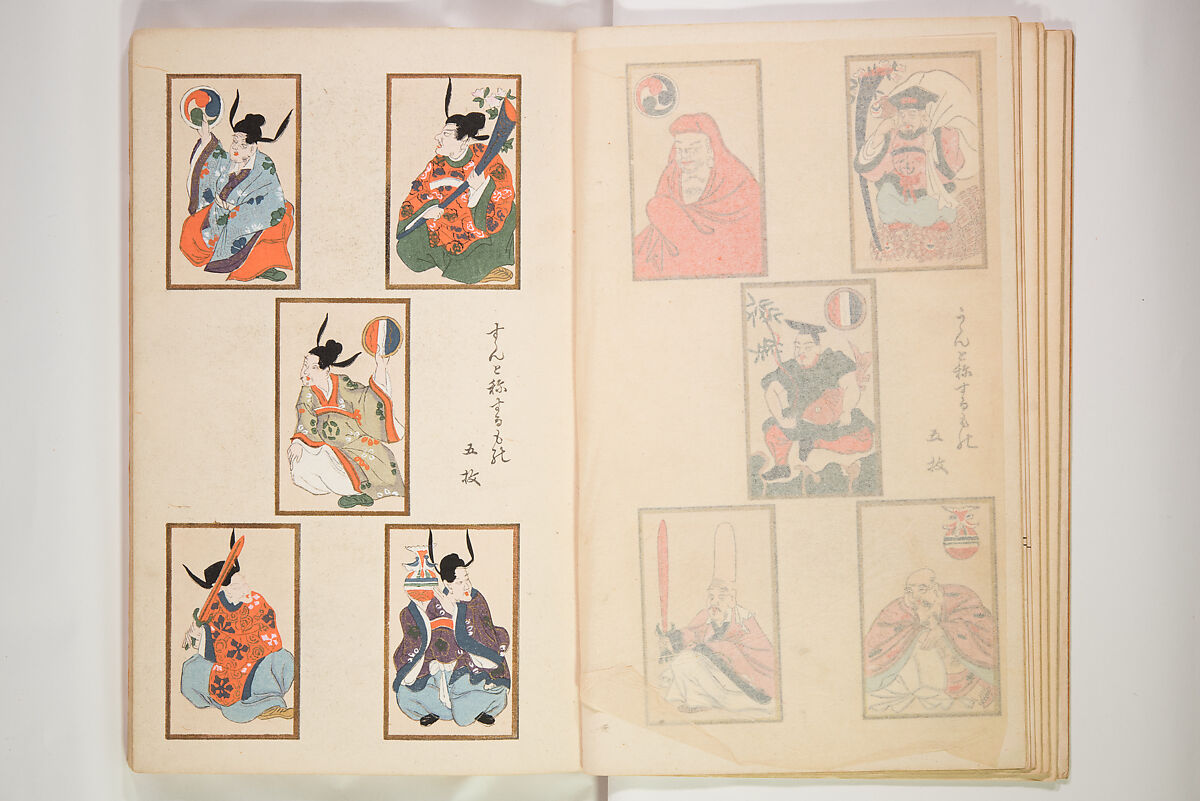 うんと称するもの
五枚
すんと称するもの
五枚